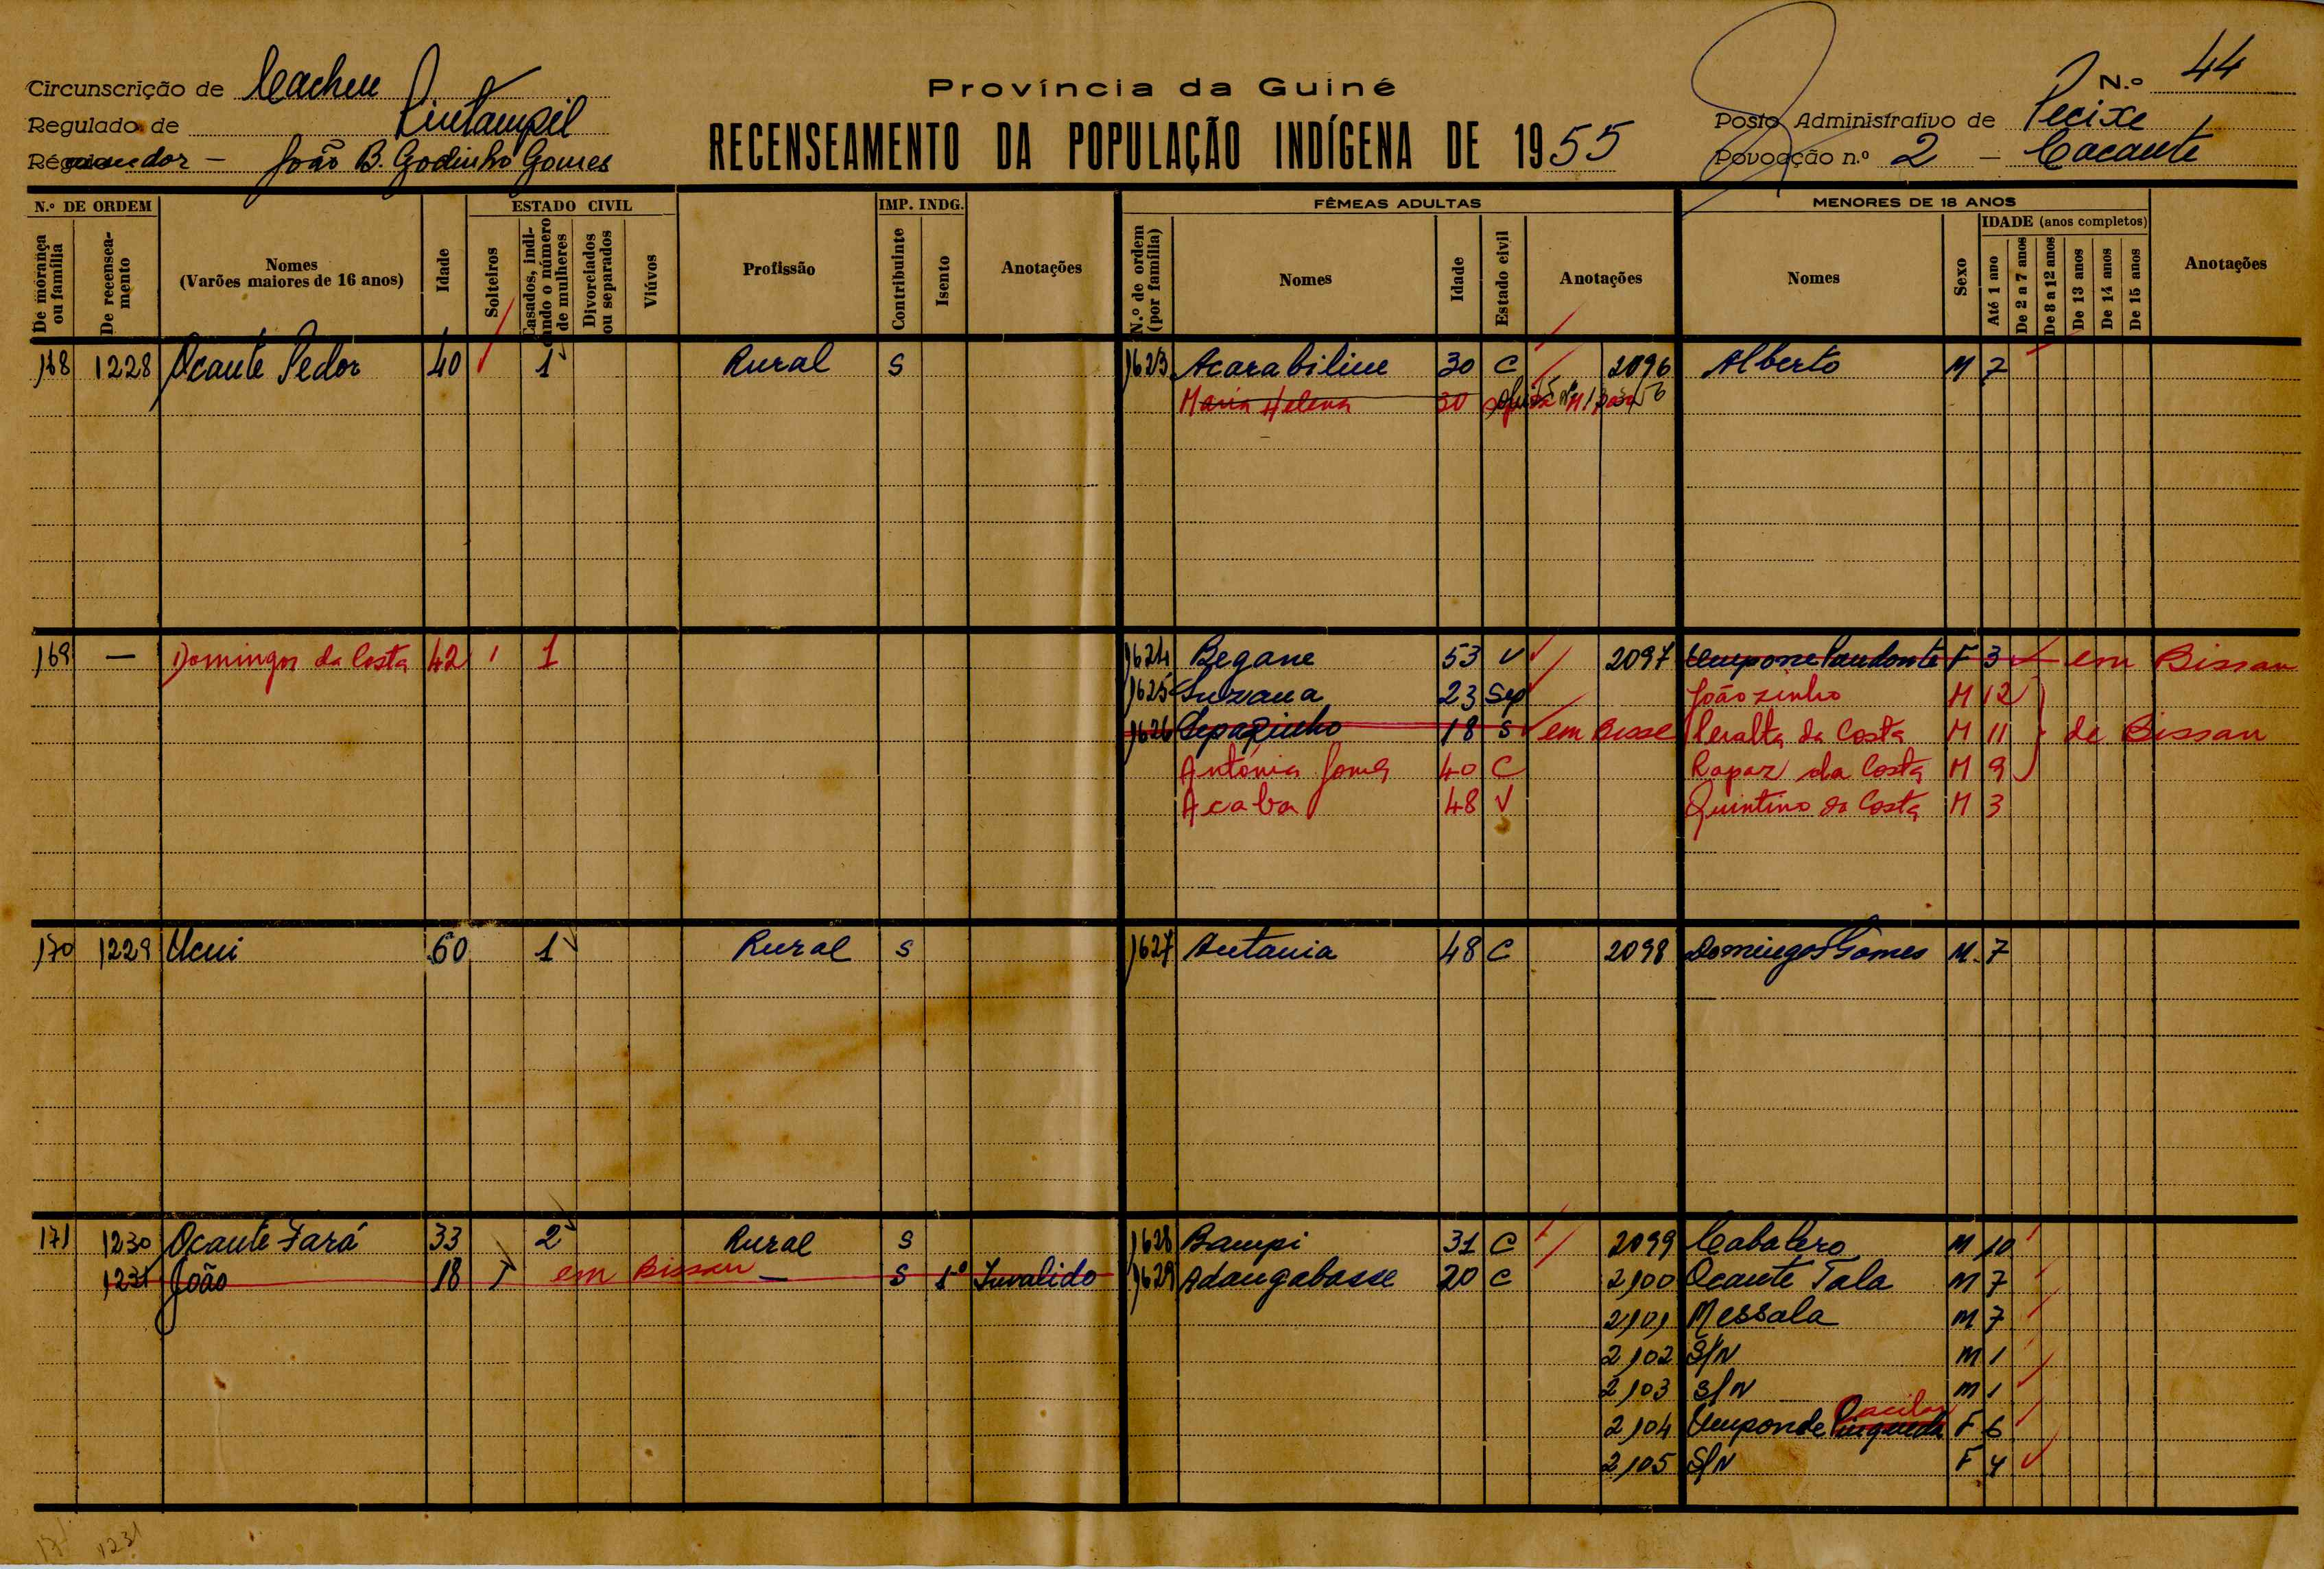 Província da Guiné
RECENSEAMENTO DA POPULAÇÃO INDÍGENA DE 1955
Circunscrição de Cacheu
Regulado de
João B. Godinho Gomes
N.º 44
Posto Administrativo de Pecixe
Povoação n.º 2 — Cacante
N.º DE ORDEM
De morança ou família
De recenseamento
Nomes (Varões maiores de 16 anos)
Idade
ESTADO CIVIL
Solteiros
Casados, indicando o número de mulheres
Divorciados ou separados
Viúvos
Profissão
IMP. INDG.
Contribuinte
Isento
Anotações
FÊMEAS ADULTAS
N.º de ordem (por família)
Nomes
Idade
Estado civil
Anotações
MENORES DE 18 ANOS
Nomes
Sexo
IDADE (anos completos)
Até 1 ano
De 2 a 7 anos
De 8 a 12 anos
De 13 anos
De 14 anos
De 15 anos
Anotações
168 1228 Ocante Pedor 40 1 Rural S 1623 Acarabiline 30 C 2096 Alberto M 7
Maria Helena 30
169 — Domingos da Costa 42 1 1624 Begane 53 V 2097 F 3 em Bissau
1625 Suzana 23 Sep Joãozinho M 12
1626 18 S em Bissau Peralta da Costa M 11 de Bissau
Antónia Gomes 40 C Rapaz da Costa M 9
Acaba 48 V Quintino da Costa M 3
170 1229 Ucui 60 1 Rural S 1627 Antania 48 C 2098 Domingos Gomes M 7
171 1230 Ocante Fará 33 2 Rural S 1628 Bampi 31 C 2099 Cabalero M 10
1231 João 18 1 em Bissau — S 1º Invalido 1629 Adangabasse 20 C 2100 Ocante Tala M 7
2101 Messala M 7
2102 S/N M 1
2103 S/N M 1
2104 Umponde F 6
2105 S/N F 4
171 1231